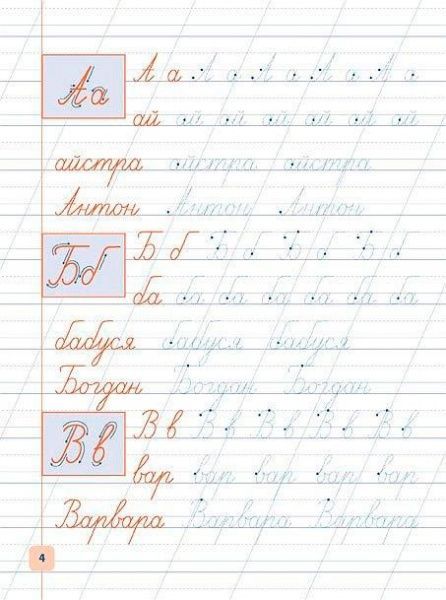 Аа
А а А а А а А а А а
ай ай ай ай ай ай ай
айстра айстра айстра
Антон Антон Антон
Бб
Б б Б б Б б Б б
ба ба ба ба ба ба ба
бабуся бабуся бабуся
Богдан Богдан Богдан
Вв
В в В в В в В в В в
вар вар вар вар вар
Варвара Варвара Варвара
4